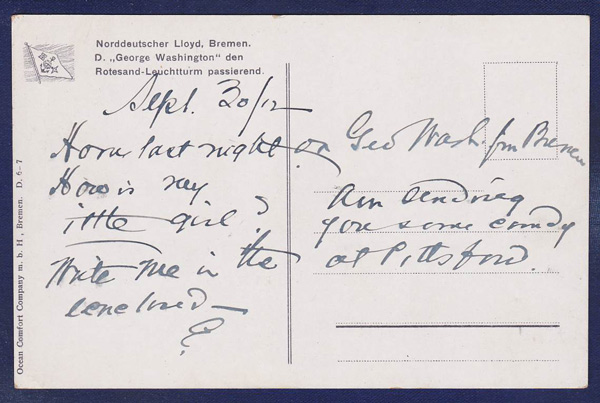 Norddeutscher Lloyd, Bremen.
D. „George Washington" den
Rotesand-Leuchtturm passierend.
Sept. 30/12
Home last night on Geo Wash. fm Bremen
How is my
little girl?
Write me in the
enclosed—
Am sending
you some candy
at Pittsford.
Ocean Comfort Company m. b. H., Bremen. D. 6-7